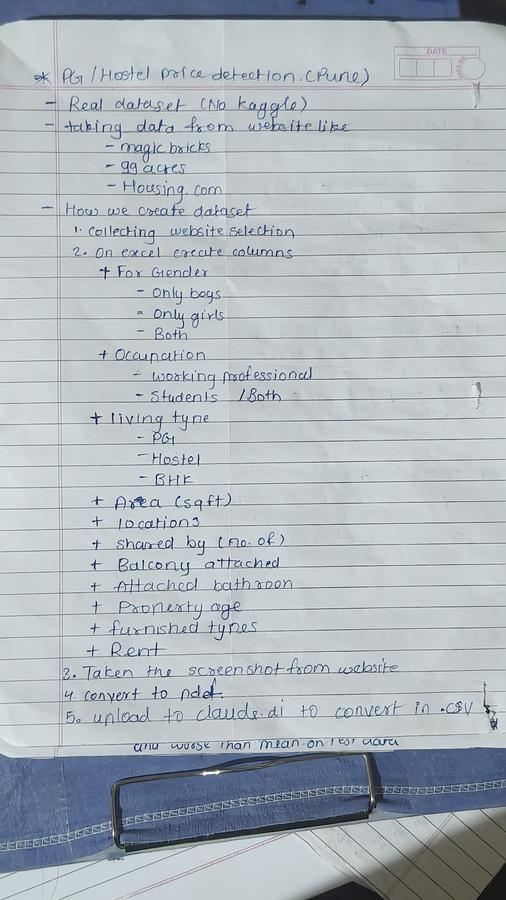 DATE
* PG / Hostel price detection. (Pune)
- Real dataset (No kaggle)
- taking data from website like
- magic bricks
- 99 acres
- Housing.com
- How we create dataset
1. collecting website selection
2. On excel create columns
+ For Gender
- Only boys
- Only girls
- Both
+ Occupation
- working professional
- Students / Both
+ living type
- PG
- Hostel
- BHK
+ Area (sqft)
+ locations
+ shared by (no. of)
+ Balcony attached
+ Attached bathroon
+ Property age
+ furnished types
+ Rent
3. Taken the screenshot from website
4. convert to pdf.
5. upload to claude.ai to convert in .csv
and worse than mean on test data